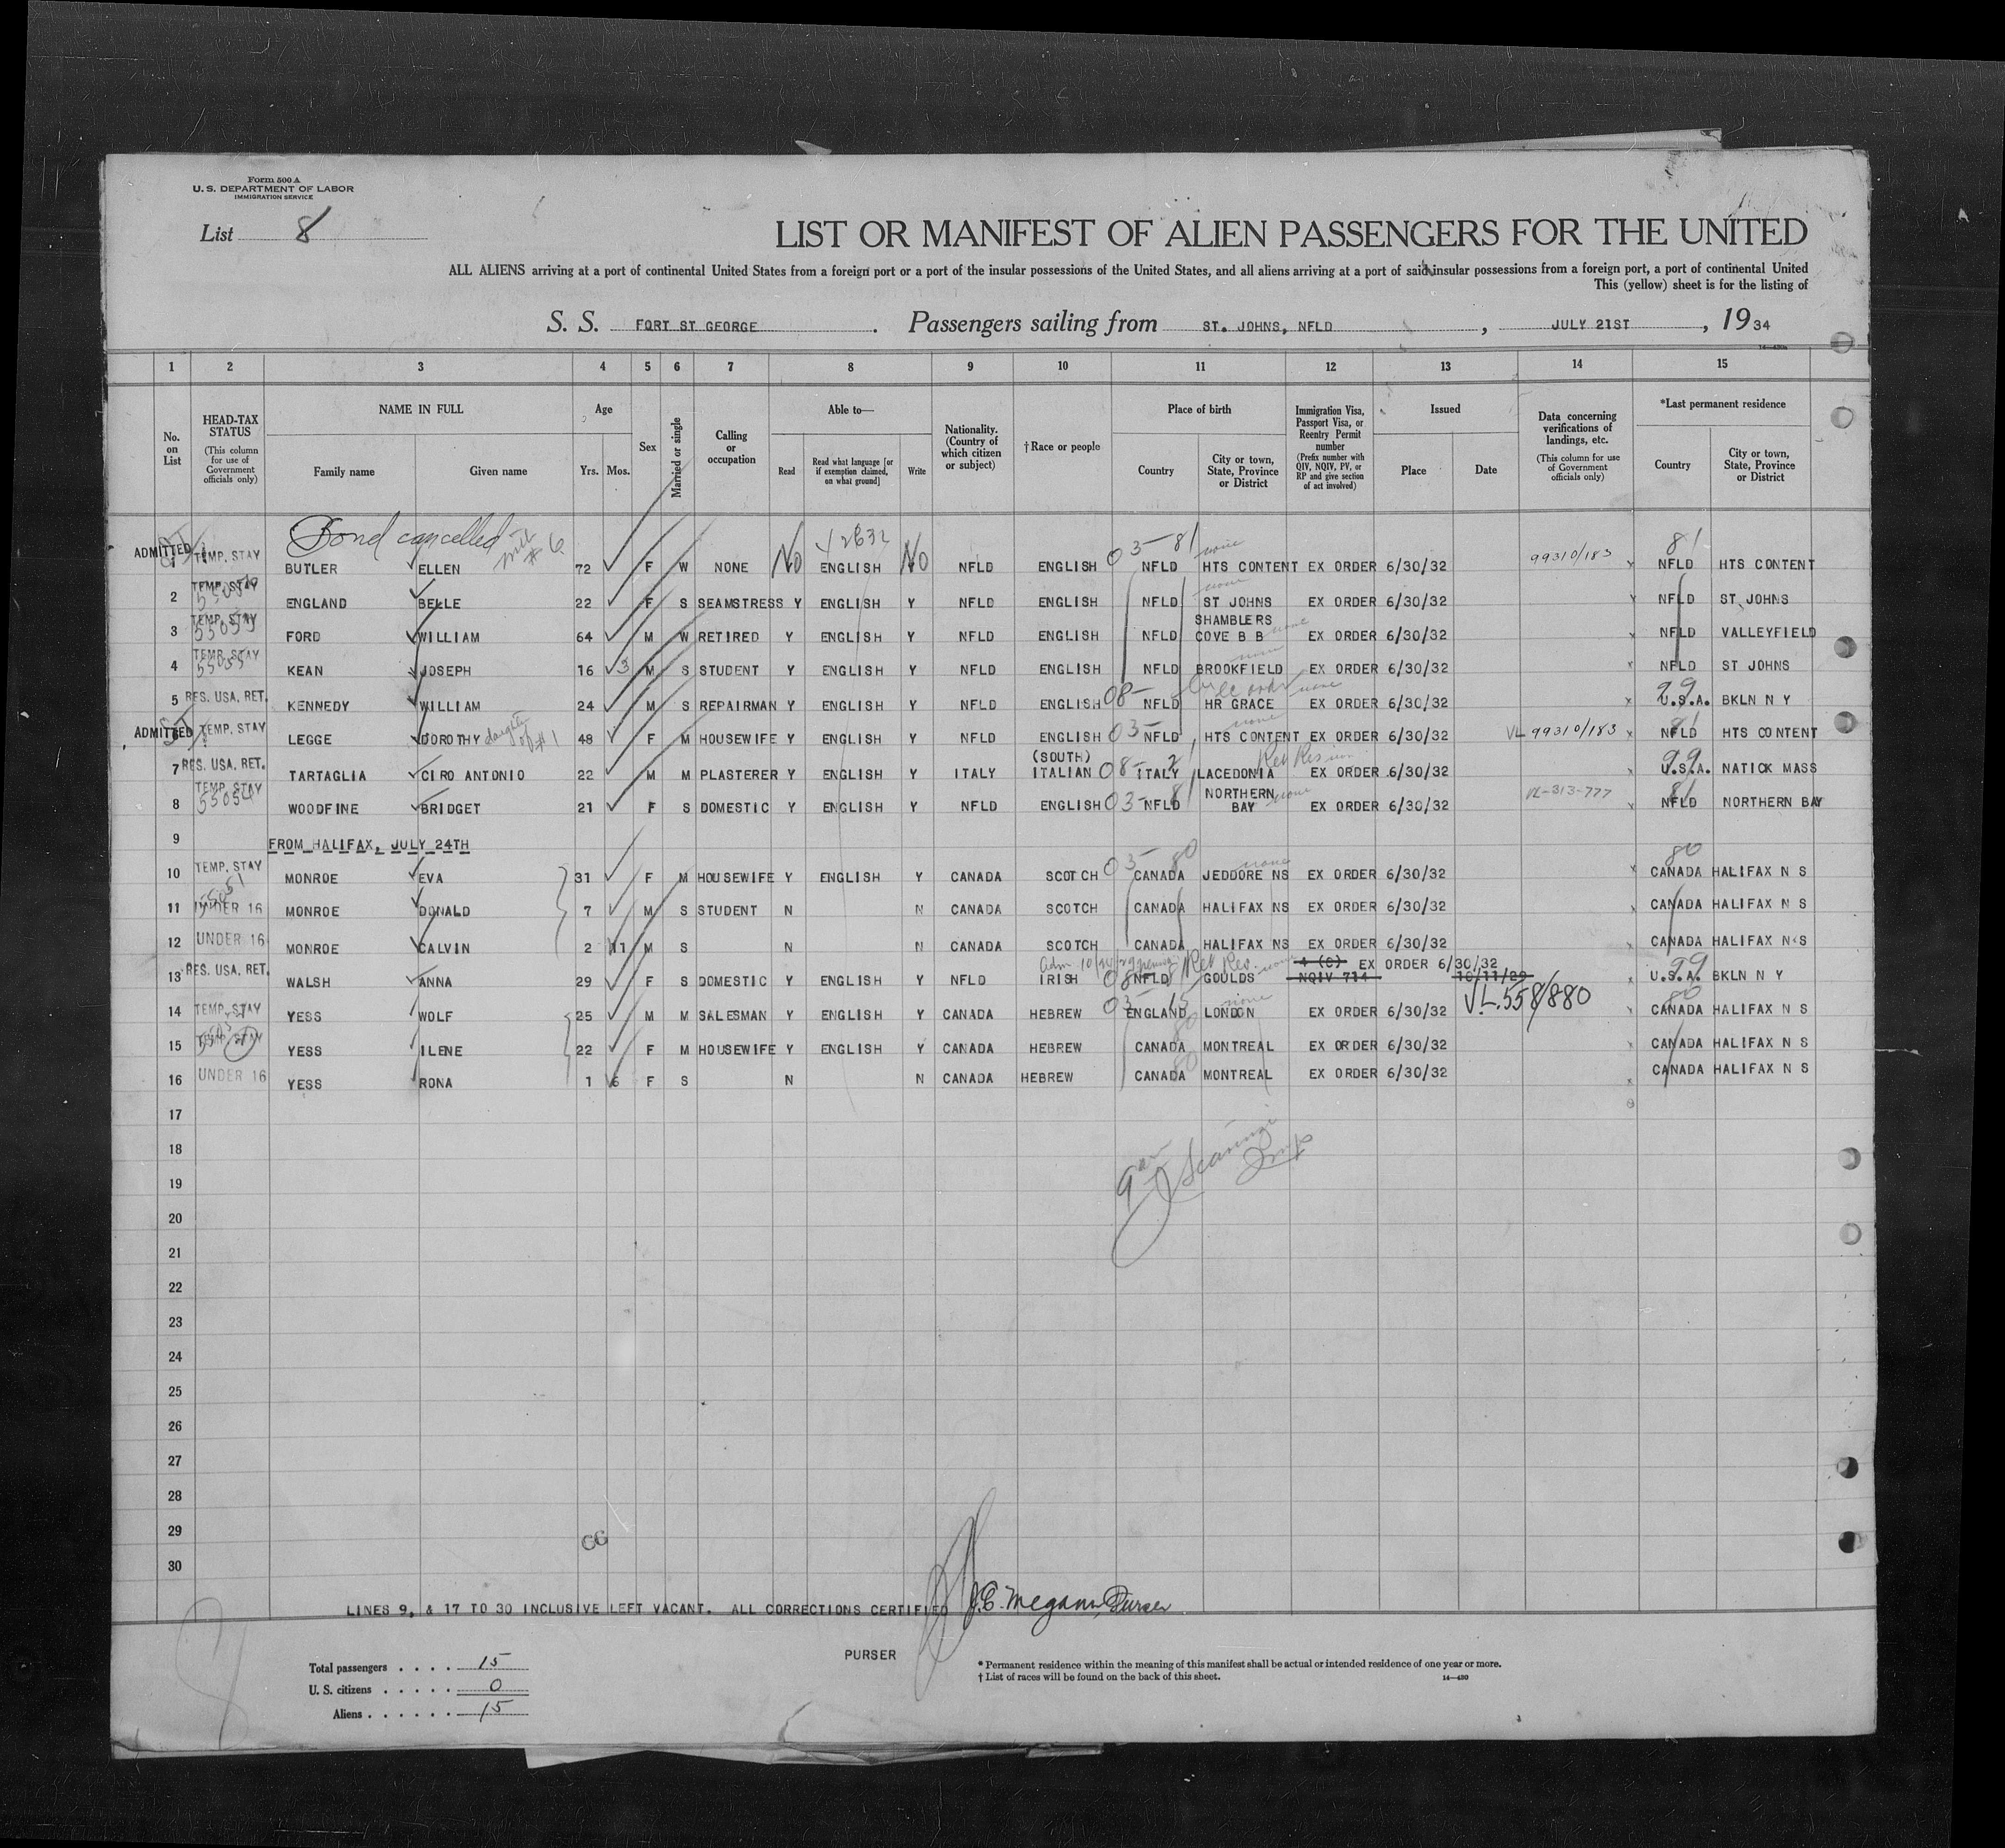 Form 500 A
U. S. DEPARTMENT OF LABOR
IMMIGRATION SERVICE
List 8
LIST OR MANIFEST OF ALIEN PASSENGERS FOR THE UNITED
ALL ALIENS arriving at a port of continental United States from a foreign port or a port of the insular possessions of the United States, and all aliens arriving at a port of said insular possessions from a foreign port, a port of continental United
This (yellow) sheet is for the listing of
S. S. FORT ST GEORGE. Passengers sailing from ST. JOHNS, NFLD, JULY 21ST, 1934
1 2 3 4 5 6 7 8 9 10 11 12 13 14 15
No. on List
HEAD-TAX STATUS (This column for use of Government officials only)
NAME IN FULL
Family name Given name
Age
Yrs. Mos.
Sex
Married or single
Calling or occupation
Able to—
Read
Read what language [or if exemption claimed, on what ground]
Write
Nationality. (Country of which citizen or subject)
†Race or people
Place of birth
Country
City or town, State, Province or District
Immigration Visa, Passport Visa, or Reentry Permit number (Prefix number with QIV, NQIV, PV, or RP and give section of act involved)
Issued
Place Date
Data concerning verifications of landings, etc. (This column for use of Government officials only)
*Last permanent residence
Country
City or town, State, Province or District
Bond cancelled with #6 42632 03-81 none 81
ADMITTED TEMP. STAY BUTLER ELLEN 72 F W NONE No ENGLISH No NFLD ENGLISH NFLD HTS CONTENT EX ORDER 6/30/32 99310/183 NFLD HTS CONTENT
2 TEMP. STAY ENGLAND BELLE 22 F S SEAMSTRESS Y ENGLISH Y NFLD ENGLISH NFLD ST JOHNS none EX ORDER 6/30/32 NFLD ST JOHNS
3 TEMP. STAY 55053 FORD WILLIAM 64 M W RETIRED Y ENGLISH Y NFLD ENGLISH NFLD SHAMBLERS COVE B B none EX ORDER 6/30/32 NFLD VALLEYFIELD
4 TEMP. STAY KEAN JOSEPH 16 3 M S STUDENT Y ENGLISH Y NFLD ENGLISH NFLD BROOKFIELD none EX ORDER 6/30/32 NFLD ST JOHNS
5 RES. USA, RET. KENNEDY WILLIAM 24 M S REPAIRMAN Y ENGLISH Y NFLD ENGLISH 08- NFLD HR GRACE none EX ORDER 6/30/32 99 U.S.A. BKLN N Y
ADMITTED TEMP. STAY LEGGE DOROTHY daughter of #1 48 F M HOUSEWIFE Y ENGLISH Y NFLD ENGLISH 03- NFLD HTS CONTENT none EX ORDER 6/30/32 VL 99310/183 81 NFLD HTS CONTENT
7 RES. USA, RET. TARTAGLIA CIRO ANTONIO 22 M M PLASTERER Y ENGLISH Y ITALY (SOUTH) ITALIAN 08- ITALY LACEDONIA Ret Res EX ORDER 6/30/32 99 U.S.A. NATICK MASS
8 TEMP. STAY 55054 WOODFINE BRIDGET 21 F S DOMESTIC Y ENGLISH Y NFLD ENGLISH 03- 81 NFLD NORTHERN BAY none EX ORDER 6/30/32 VL-313-777 81 NFLD NORTHERN BAY
9 FROM HALIFAX, JULY 24TH
10 TEMP. STAY MONROE EVA 31 F M HOUSEWIFE Y ENGLISH Y CANADA SCOTCH 03- 80 CANADA JEDDORE NS none EX ORDER 6/30/32 80 CANADA HALIFAX N S
11 UNDER 16 MONROE DONALD 7 M S STUDENT N N CANADA SCOTCH CANADA HALIFAX NS EX ORDER 6/30/32 CANADA HALIFAX N S
12 UNDER 16 MONROE CALVIN 2 11 M S N N CANADA SCOTCH CANADA HALIFAX NS EX ORDER 6/30/32 CANADA HALIFAX N S
13 RES. USA, RET. WALSH ANNA 29 F S DOMESTIC Y ENGLISH Y NFLD IRISH 08 NFLD GOULDS Ret Res. none 4 (C) EX ORDER 6/30/32 NQIV 714 10/11/29 99 U.S.A. BKLN N Y
14 TEMP. STAY YESS WOLF 25 M M SALESMAN Y ENGLISH Y CANADA HEBREW 03- 15 ENGLAND LONDON none EX ORDER 6/30/32 VL.558/880 80 CANADA HALIFAX N S
15 TEMP. STAY YESS ILENE 22 F M HOUSEWIFE Y ENGLISH Y CANADA HEBREW 80 CANADA MONTREAL EX ORDER 6/30/32 CANADA HALIFAX N S
16 UNDER 16 YESS RONA 1 6 F S N N CANADA HEBREW 80 CANADA MONTREAL EX ORDER 6/30/32 CANADA HALIFAX N S
17
18
19
20
21
22
23
24
25
26
27
28
29
30
LINES 9, & 17 TO 30 INCLUSIVE LEFT VACANT. ALL CORRECTIONS CERTIFIED J.C. Megann, Purser
PURSER
Total passengers . . . . 15
U. S. citizens . . . . . 0
Aliens . . . . . . 15
* Permanent residence within the meaning of this manifest shall be actual or intended residence of one year or more.
† List of races will be found on the back of this sheet.
14—430